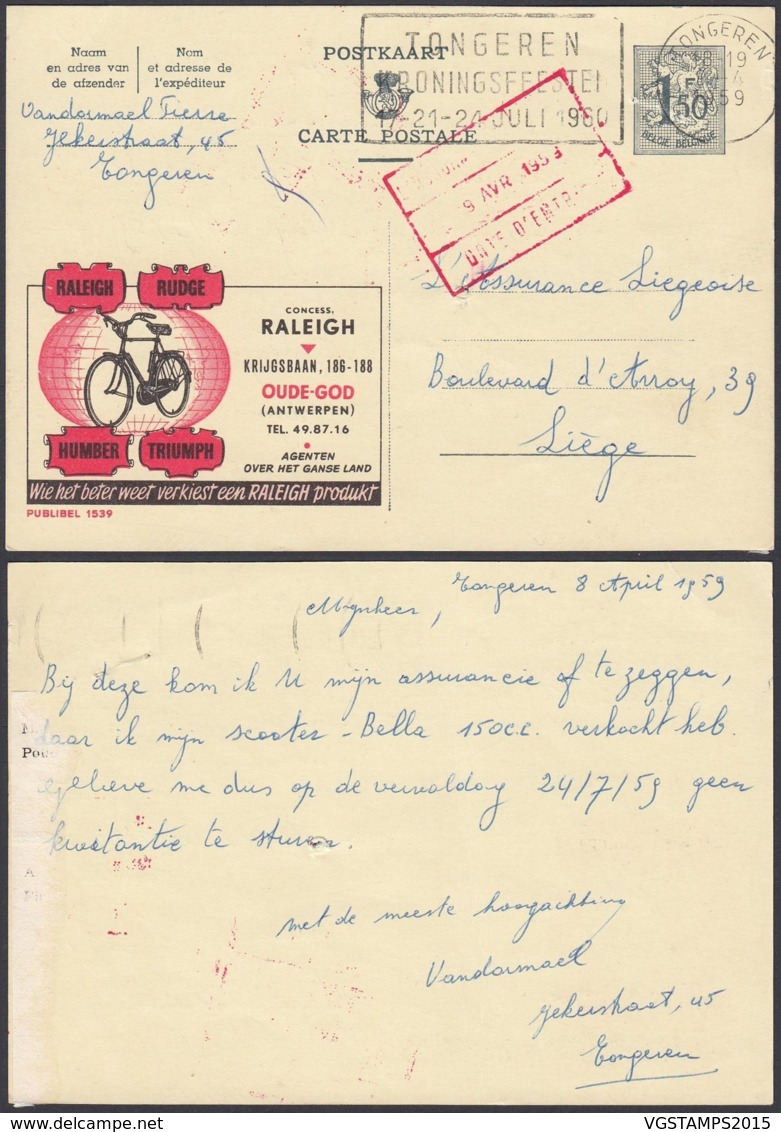 Naam
en adres van
de afzender
Nom
et adresse de
l'expéditeur
POSTKAART
CARTE POSTALE
TONGEREN
KRONINGSFEESTEN
17-21-24 JULI 1960
TONGEREN
1959
1 F 50
BELGIE BELGIQUE
Vandormael Pierre
Jekerstraat, 45
Tongeren
9 AVR. 1959
DATE D'ENTR
L'Assurance Liegeoise
Boulevard d'Avroy, 39
Liège
RALEIGH
RUDGE
HUMBER
TRIUMPH
CONCESS.
RALEIGH
KRIJGSBAAN, 186-188
OUDE-GOD
(ANTWERPEN)
TEL. 49.87.16
AGENTEN
OVER HET GANSE LAND
Wie het beter weet verkiest een RALEIGH produkt
PUBLIBEL 1539
Tongeren 8 April 1959
Mynheer,
Bij deze kom ik U mijn assurancie af te zeggen,
daar ik mijn scooter - Bella 150 c.c. verkocht heb.
gelieve me dus op de vervaldag 24/7/59 geen
kwitantie te sturen.
met de meeste hoogachting
Vandormael
Jekerstraat, 45
Tongeren
VGSTAMPS2015